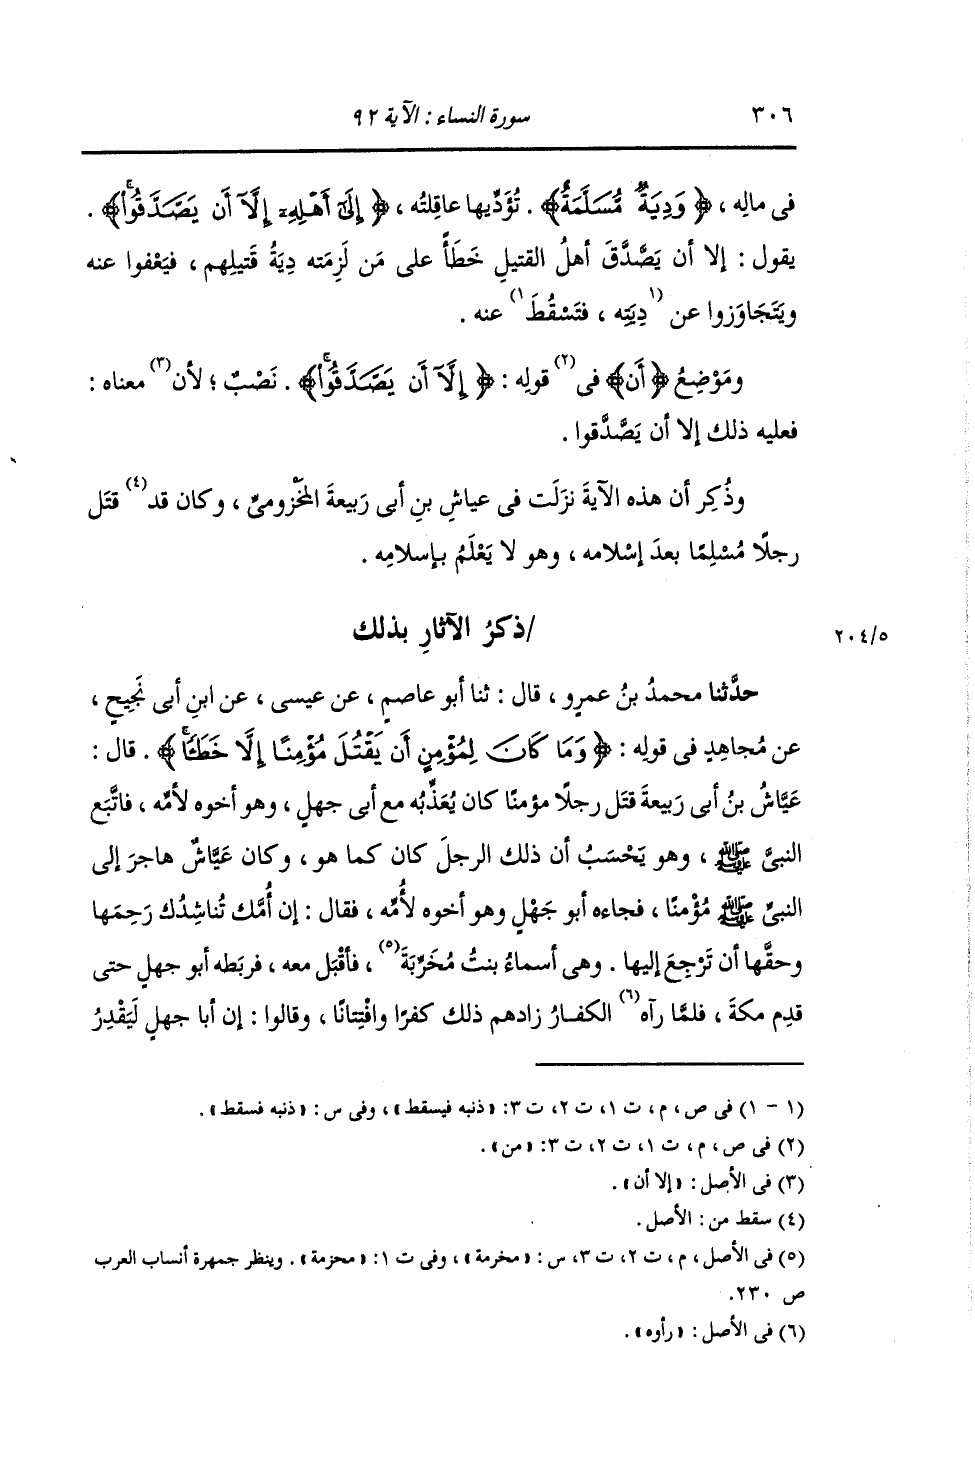 ٣٠٦ سورة النساء : الآية ٩٢
فى مالِه ، ﴿ وَدِيَةٌ مُّسَلَّمَةٌ ﴾ . تُؤَدِّيها عاقِلتُه ، ﴿ إِلَىٰٓ أَهْلِهِۦٓ إِلَّآ أَن يَصَّدَّقُواْۚ ﴾ .
يقول : إلا أن يَصَّدَّقَ أهلُ القتيلِ خَطَأً على مَن لَزِمَته دِيَةُ قَتيلِهم ، فيَعْفوا عنه
ويَتَجَاوَزوا عن (١) دِيَتِه ، فتَسْقُطَ (١) عنه .
ومَوْضِعُ ﴿ أَن ﴾ فى (٢) قولِه : ﴿ إِلَّآ أَن يَصَّدَّقُواْۚ ﴾ . نَصْبٌ ؛ لأن (٣) معناه :
فعليه ذلك إلا أن يَصَّدَّقوا .
وذُكِر أن هذه الآيةَ نزَلَت فى عياشِ بنِ أبى رَبيعةَ المَخْزومىِّ ، وكان قد (٤) قتَل
رجلًا مُسْلِمًا بعدَ إسْلامه ، وهو لا يَعْلَمُ بإسلامِه .
/ذكرُ الآثارِ بذلك
٢٠٤/٥
حدَّثنا محمدُ بنُ عمرٍو ، قال : ثنا أبو عاصمٍ ، عن عيسى ، عن ابنِ أبى نَجيحٍ ،
عن مُجاهدٍ فى قولِه : ﴿ وَمَا كَانَ لِمُؤْمِنٍ أَن يَقْتُلَ مُؤْمِنًا إِلَّا خَطَـًٔاۚ ﴾ . قال :
عَيَّاشُ بنُ أبى رَبيعةَ قتَل رجلًا مؤمنًا كان يُعَذِّبُه مع أبى جهلٍ ، وهو أخوه لأمِّه ، فاتَّبَع
النبىَّ ﷺ ، وهو يَحْسَبُ أن ذلك الرجلَ كان كما هو ، وكان عَيَّاشٌ هاجرَ إلى
النبىِّ ﷺ مُؤْمنًا ، فجاءه أبو جَهْلٍ وهو أخوه لأُمِّه ، فقال : إن أُمَّك تُناشِدُك رَحِمَها
وحقَّها أن تَرْجِعَ إليها . وهى أسماءُ بنتُ مُخَرِّبَةَ (٥) ، فأقْبَل معه ، فربَطه أبو جهلٍ حتى
قدِم مكةَ ، فلمَّا رآه (٦) الكفـارُ زادهم ذلك كفرًا وافْتِتانًا ، وقالوا : إن أبا جهلٍ لَيَقْدِرُ
(١ - ١) فى ص ، م ، ت ١ ، ت ٢ ، ت ٣ : « ذنبه فيسقط » ، وفى س : « ذنبه فسقط » .
(٢) فى ص ، م ، ت ١ ، ت ٢ ، ت ٣ : « من » .
(٣) فى الأصل : « إلا أن » .
(٤) سقط من : الأصل .
(٥) فى الأصل ، م ، ت ٢ ، ت ٣ ، س : « مخرمة » ، وفى ت ١ : « محزمة » . وينظر جمهرة أنساب العرب
ص ٢٣٠ .
(٦) فى الأصل : « رأوه » .